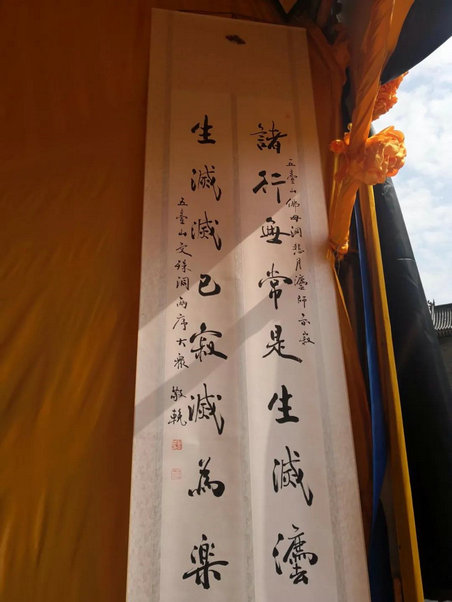 五臺山佛母洞悲月灋師示寂
諸行無常是生滅灋
生滅滅已寂滅為楽
五臺山文殊洞兩序大眾 敬輓